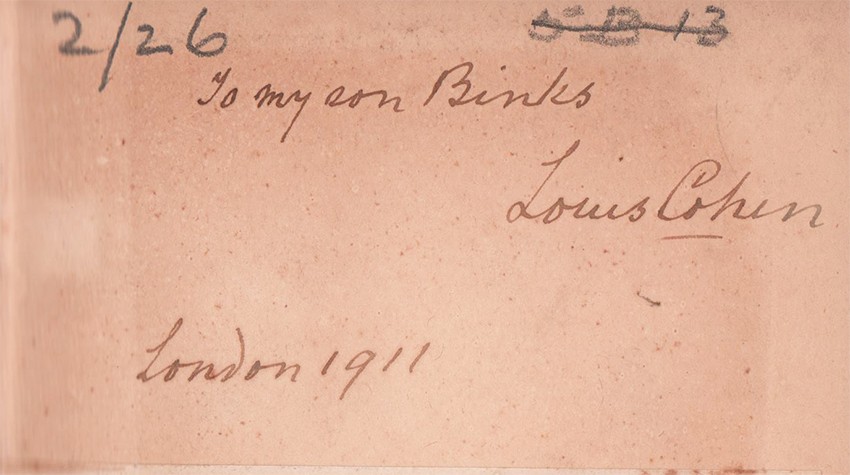 2/26
To my son Binks
Louis Cohen
London 1911